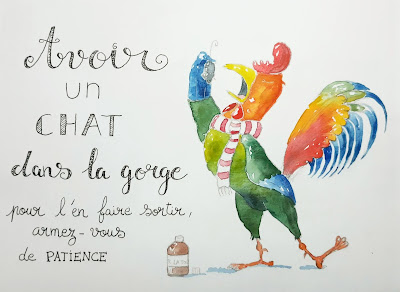 Avoir
un
CHAT
dans la gorge
pour l'en faire sortir,
armez-vous
de PATIENCE